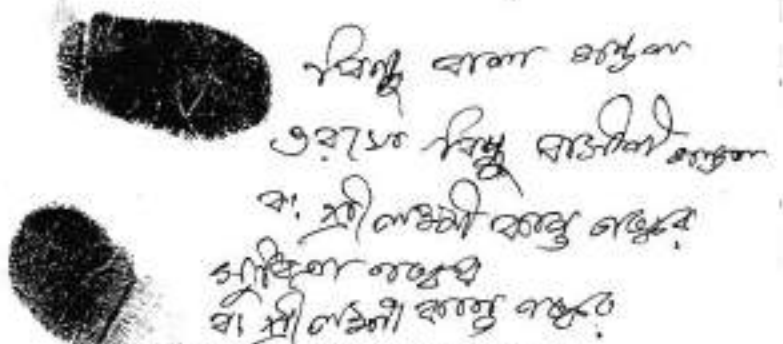 বিন্দু বালা মন্ডল
ওরফে বিন্দু বাসীনী মন্ডল
ব. শ্রী লক্ষ্মী কান্ত লস্কর
সুচিত্রা লস্কর
ব. শ্রী লক্ষ্মী কান্ত লস্কর